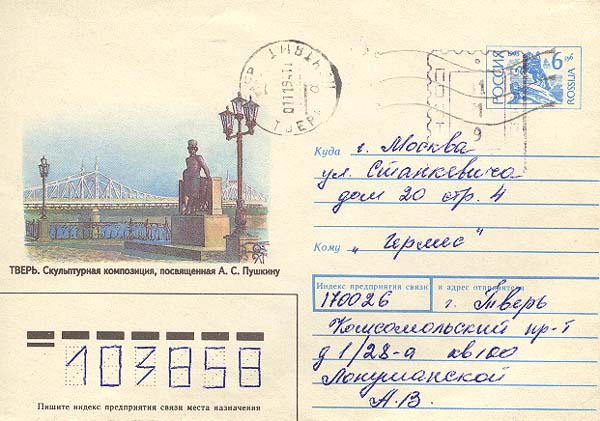 РОССИЯ
1993
6
ROSSIJA
ТВЕРЬ
Куда г. Москва
ул. Станкевича
дом 20 стр. 4
Кому „Гермес"
ТВЕРЬ. Скульптурная композиция, посвященная А. С. Пушкину
Индекс предприятия связи и адрес отправителя
170026 г. Тверь
Комсомольский пр-т
д 1/28-а кв 100
Лонуманской
А.В.
103858
Пишите индекс предприятия связи места назначения